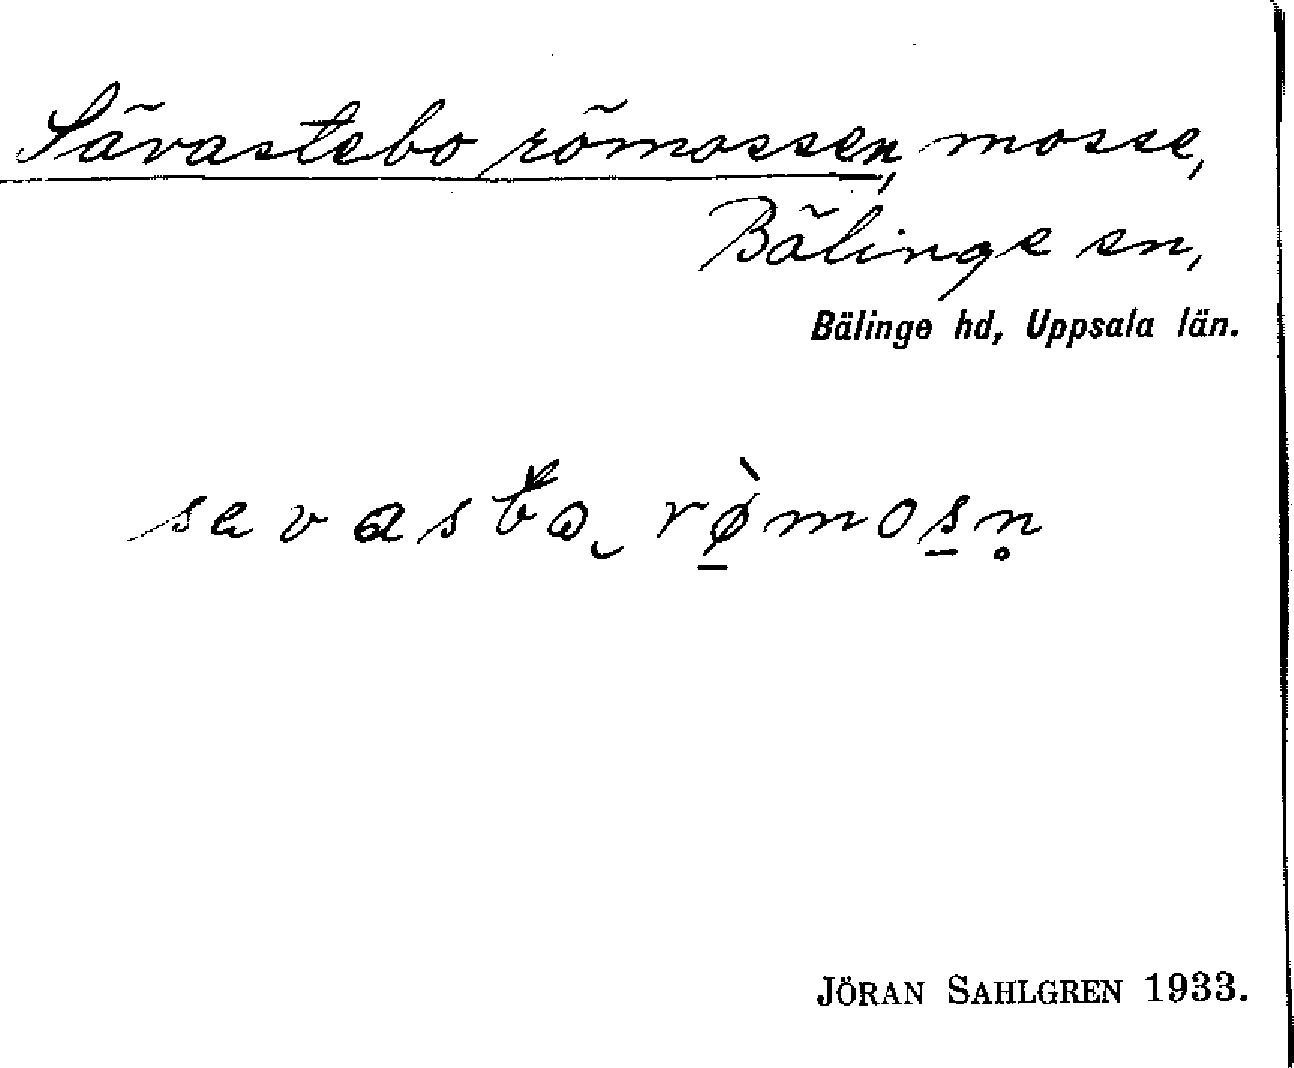 Sävastebo römossen, mosse,
Bälinge sn,
Bälinge hd, Uppsala län.
JÖRAN SAHLGREN 1933.